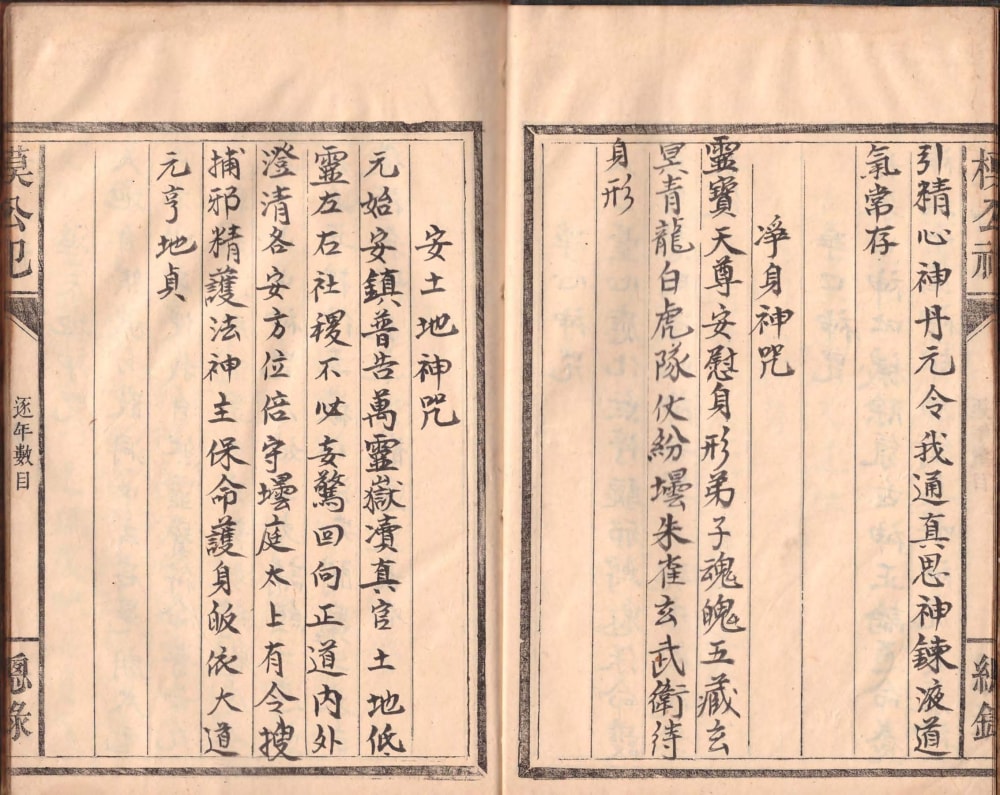 引精心神丹元令我通真思神鍊液道
氣常存
淨身神咒
靈寶天尊安慰身形弟子魂魄五藏玄
冥青龍白虎隊仗紛壜朱雀玄武衛待
身形
安土地神咒
元始安鎮普告萬靈嶽凟真官土地低
靈左右社稷不必妄驚回向正道內外
澄清各安方位倍守壜庭太上有令搜
捕邪精護法神主保命護身皈依大道
元亨地貞
逐年數目
總錄